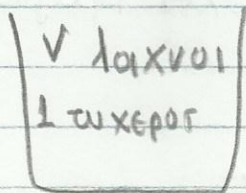 ν λαχνοι
1 τυχερος